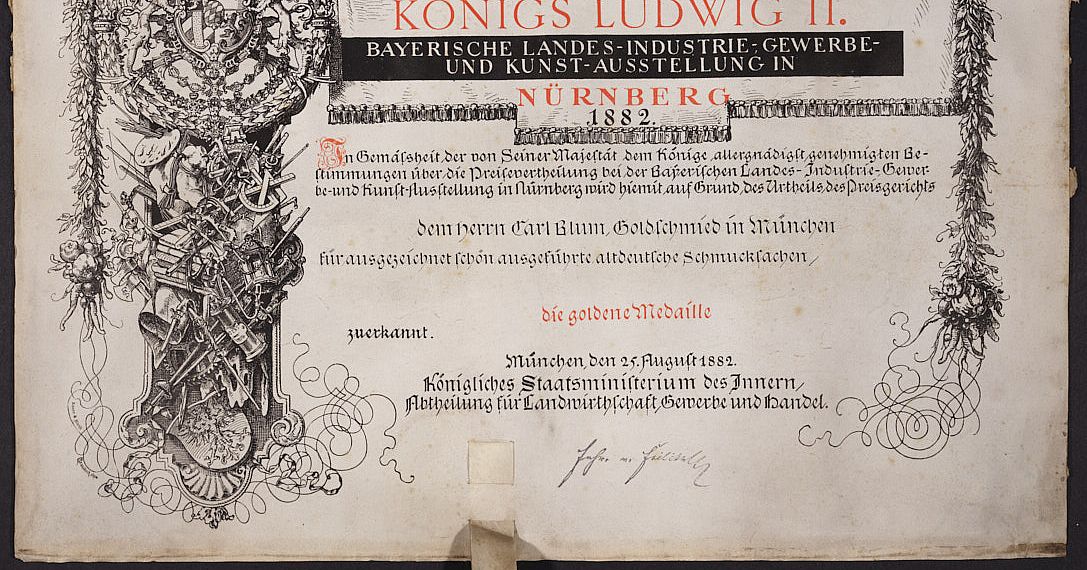 KÖNIGS LUDWIG II.
BAYERISCHE LANDES-INDUSTRIE-, GEWERBE-
UND KUNST-AUSSTELLUNG IN
NÜRNBERG
1882.
In Gemäſsheit der von Seiner Majestät dem Könige allergnädigſt genehmigten Be-
stimmungen über die Preisevertheilung bei der Bayerischen Landes-Industrie-Gewer-
be-und Kunſt-Ausstellung in Nürnberg wird hiemit auf Grund des Urtheils des Preisgerichts
dem Herrn Carl Blum, Goldschmied in München
für ausgezeichnet ſchön ausgeführte altdeutsche Schmucksachen,
die goldene Medaille
zuerkannt.
München, den 25. August 1882.
Königliches Staatsministerium des Innern,
Abtheilung für Landwirthschaft, Gewerbe und Handel.